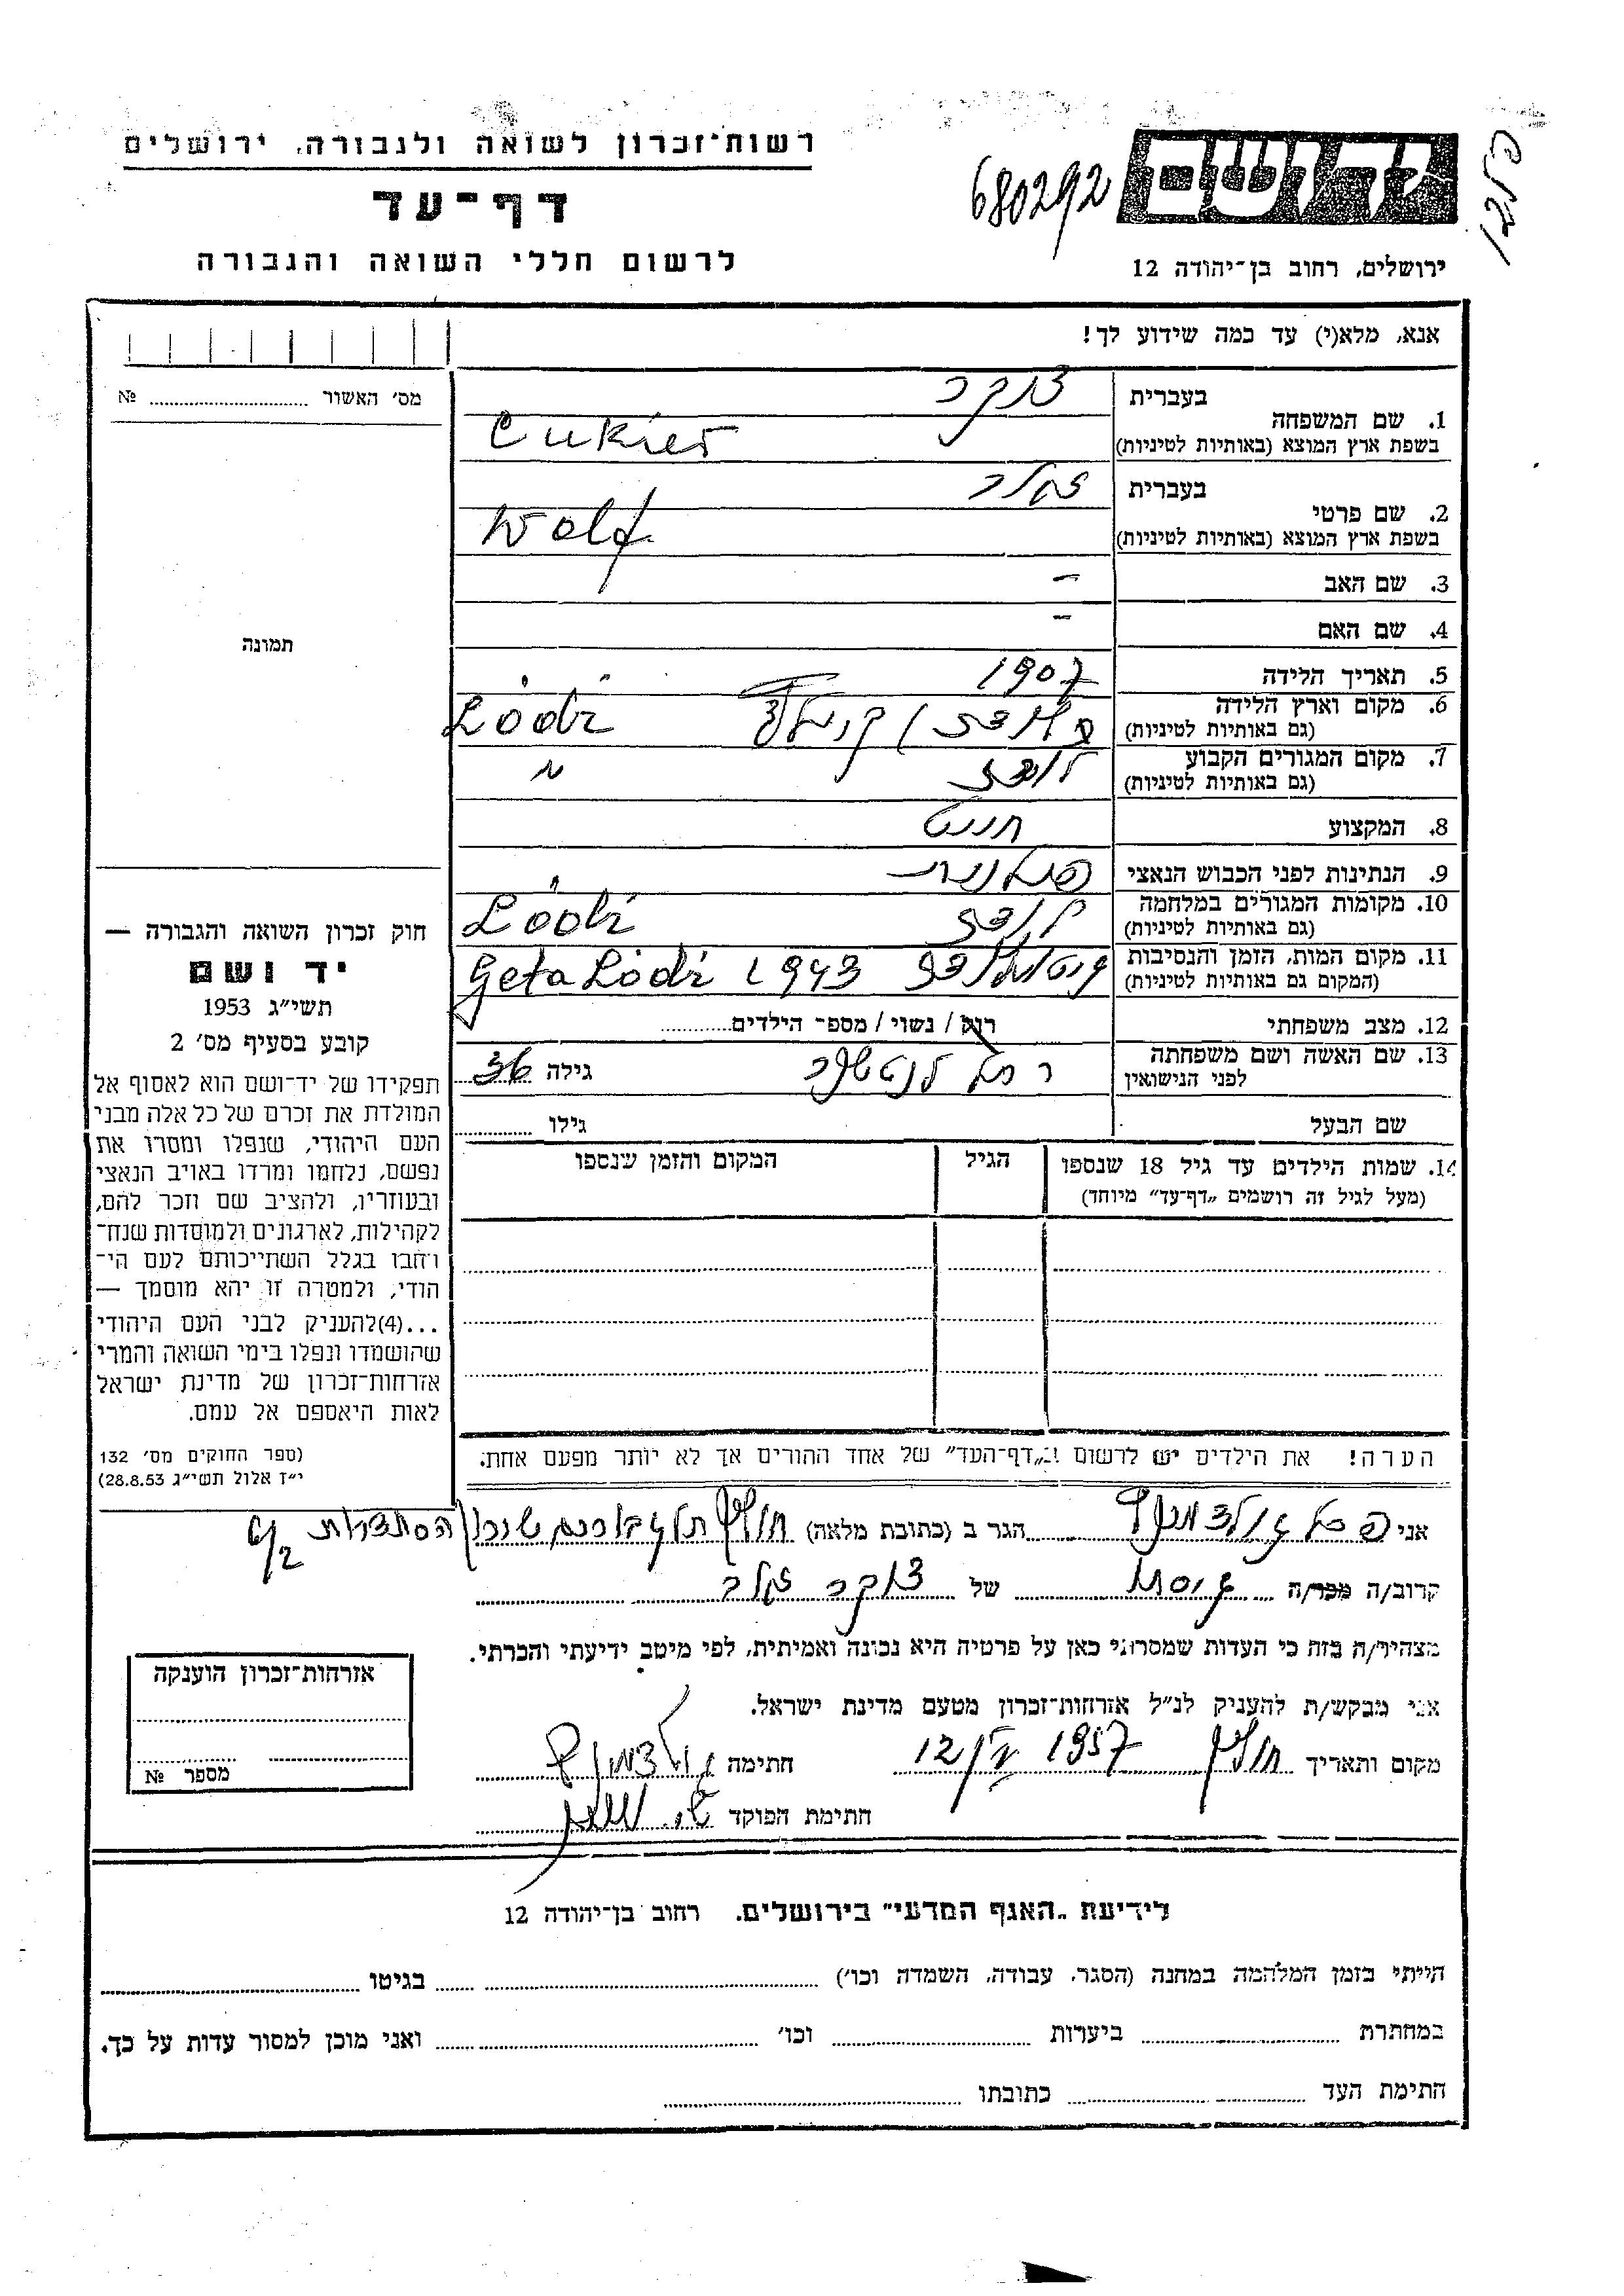 רשות־זכרון לשואה ולגבורה, ירושלים
דף־עד
לרשום חללי השואה והגבורה
680292
יד ושם
ירושלים, רחוב בן־יהודה 12
אנא, מלא(י) עד כמה שידוע לך!
מס׳ האשור № 
תמונה
1. שם המשפחה
בעברית צוקר
בשפת ארץ המוצא (באותיות לטיניות) Cukier
2. שם פרטי
בעברית
בשפת ארץ המוצא (באותיות לטיניות) Wolf
3. שם האב –
4. שם האם –
5. תאריך הלידה 1907
6. מקום וארץ הלידה
(גם באותיות לטיניות) Lódź
7. מקום המגורים הקבוע לודז
(גם באותיות לטיניות) "
8. המקצוע
9. הנתינות לפני הכבוש הנאצי פולנית
10. מקומות המגורים במלחמה לודז
(גם באותיות לטיניות) Lódź
11. מקום המות, הזמן והנסיבות גיטו לודז
(המקום גם באותיות לטיניות) Geta Lódź 1943
12. מצב משפחתי רווק / נשוי / מספר הילדים
13. שם האשה ושם משפחתה
לפני הנישואין רחל גילה 36
שם הבעל גילו
14. שמות הילדים עד גיל 18 שנספו הגיל המקום והזמן שנספו
(מעל לגיל זה רושמים „דף־עד״ מיוחד)
הערה! את הילדים יש לרשום ב„דף־העד״ של אחד ההורים אך לא יותר מפעם אחת.
חוק זכרון השואה והגבורה —
יד ושם
תשי״ג 1953
קובע בסעיף מס׳ 2
תפקידו של יד־ושם הוא לאסוף אל
המולדת את זכרם של כל אלה מבני
העם היהודי, שנפלו ומסרו את
נפשם, נלחמו ומרדו באויב הנאצי
ובעוזריו, ולהציב שם וזכר להם,
לקהילות, לארגונים ולמוסדות שנח־
רבו בגלל השתייכותם לעם הי־
הודי, ולמטרה זו יהא מוסמך —
...(4)להעניק לבני העם היהודי
שהושמדו ונפלו בימי השואה והמרי
אזרחות־זכרון של מדינת ישראל
לאות היאספם אל עמם.
(ספר החוקים מס׳ 132
י״ז אלול תשי״ג 28.8.53)
אני גולדמן הגר ב (כתובת מלאה) חולון שיכון הסתדרות
קרוב/ה מכר/ה גיסתו של צוקר
מצהיר/ה בזה כי העדות שמסרתי כאן על פרטיה היא נכונה ואמיתית, לפי מיטב ידיעתי והכרתי.
אני מבקש/ת להעניק לנ״ל אזרחות־זכרון מטעם מדינת ישראל.
מקום ותאריך חולון 12 יוני 1957 חתימה
חתימת הפוקד
אזרחות־זכרון הוענקה
מספר №
לידיעת „האגף המדעי״ בירושלים, רחוב בן־יהודה 12
הייתי בזמן המלחמה במחנה (הסגר, עבודה, השמדה וכו׳) בגיטו
במחתרת ביערות וכו׳ ואני מוכן למסור עדות על כך.
חתימת העד כתובתו